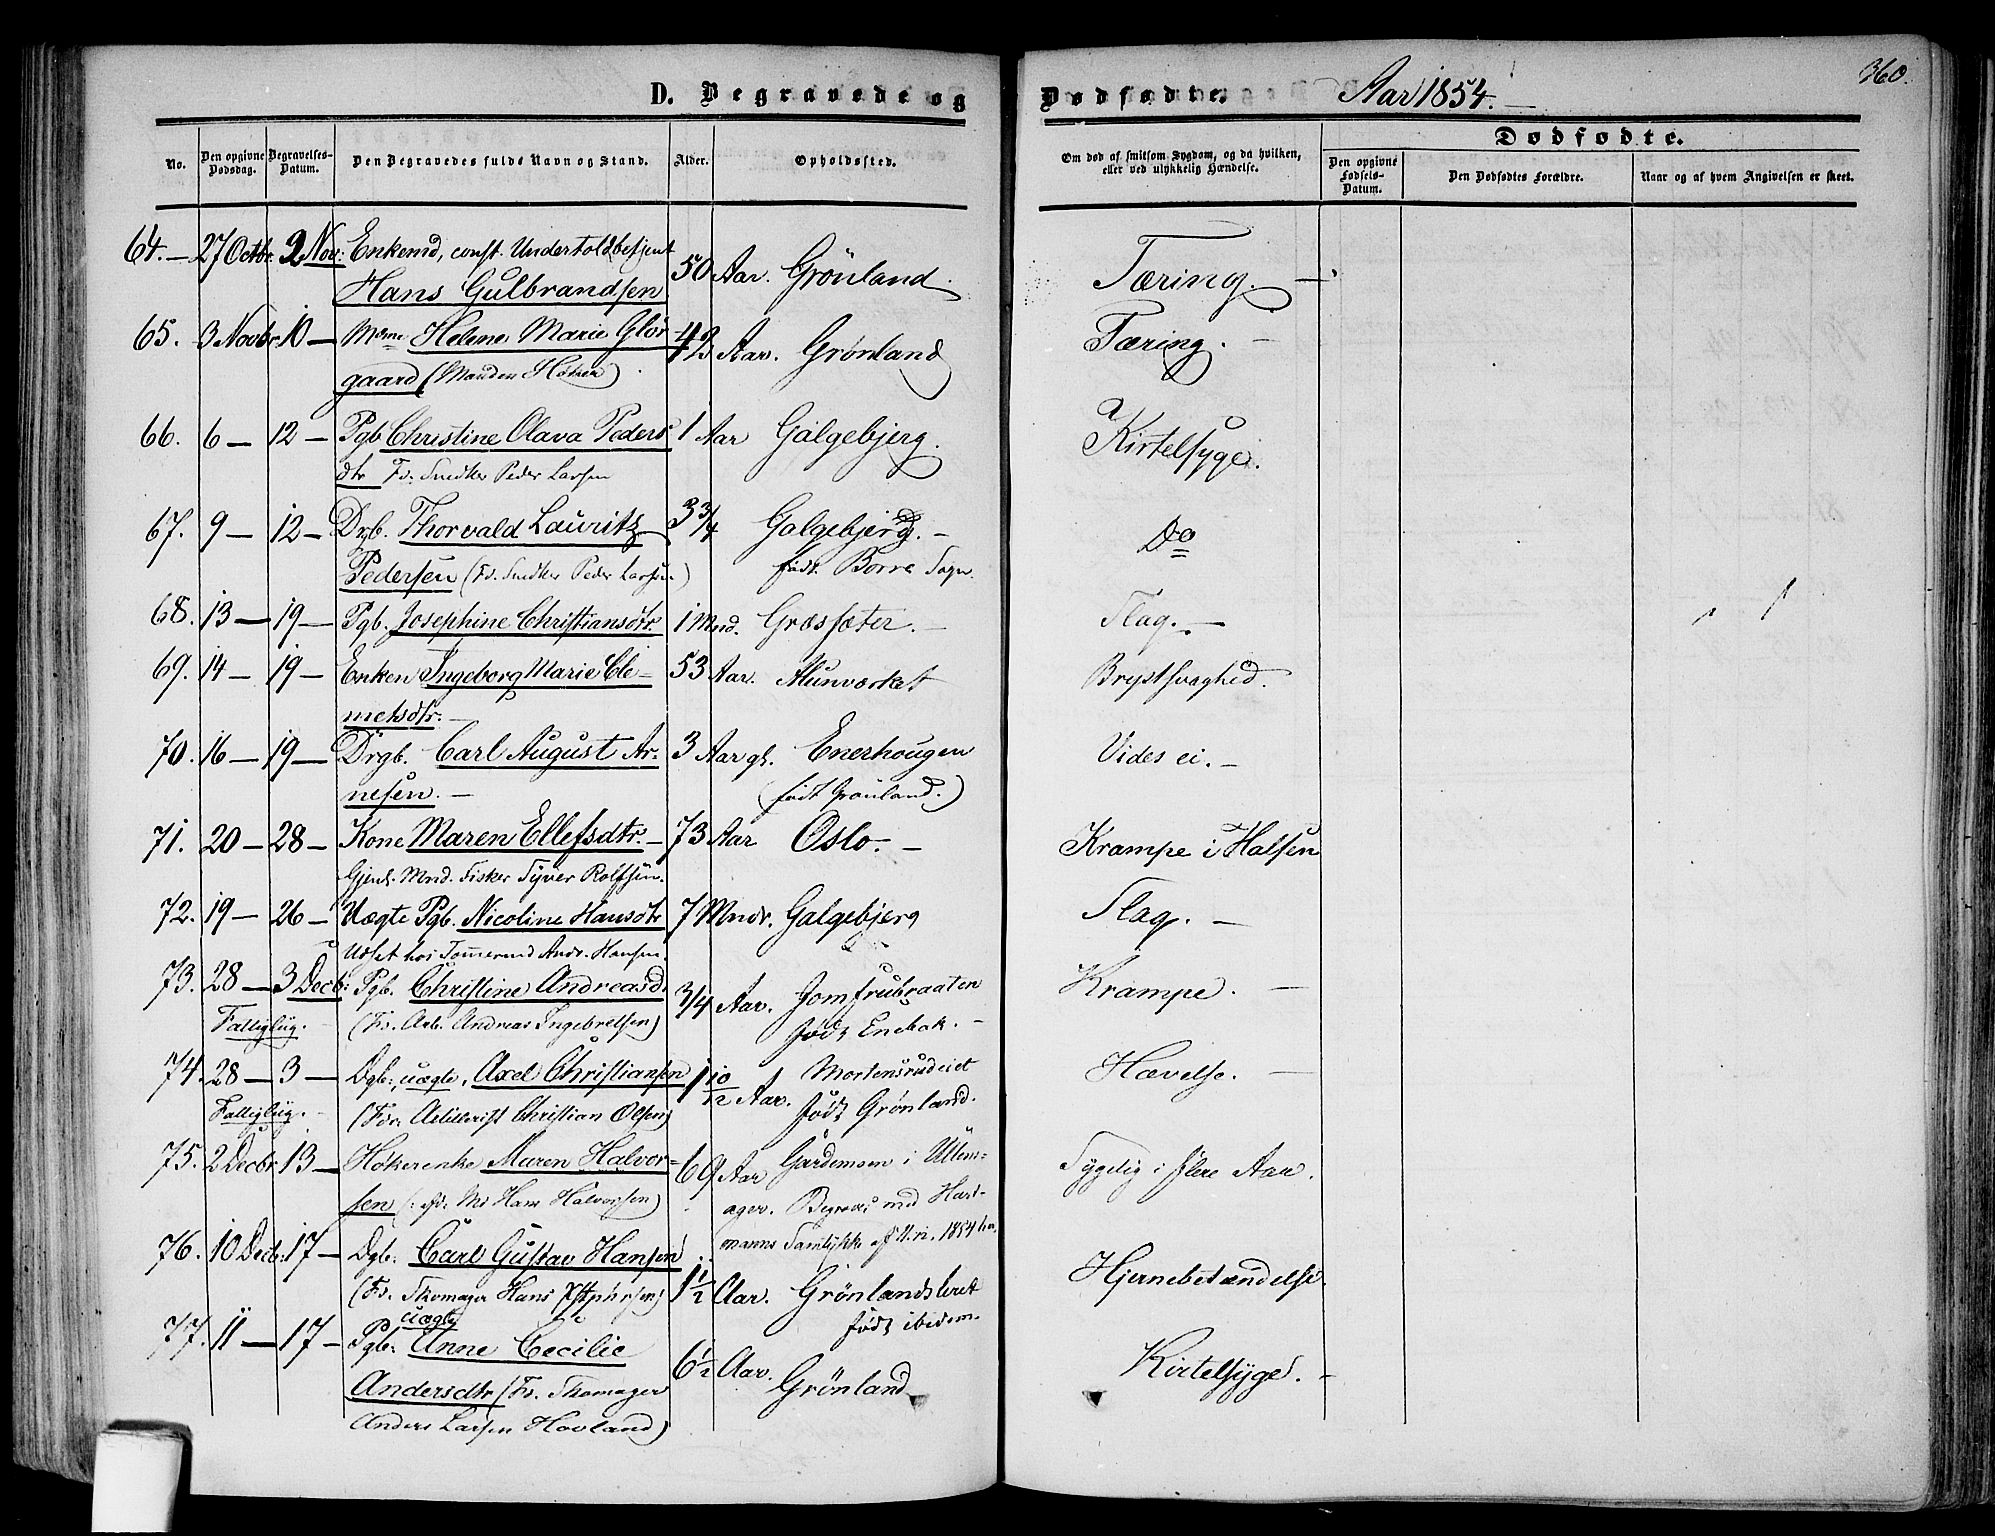 360.
D. Begravede og Dødfødte. Aar 1854.
Dødfødte.
No.
Den opgivne Dødsdag.
Begravelses-Datum.
Den Begravedes fulde Navn og Stand.
Alder.
Opholdssted.
Om død af smitsom Sygdom, og da hvilken, eller ved ulykkelig Hændelse.
Den opgivne Fødsels-Datum.
Den Dødfødtes Forældre.
Naar og af hvem Angivelsen er skeet.
64. — 27 Octbr. 2 Nov: Enkemd, const. Undertoldbetjent 50 Aar. Grönland. Tæring. —
Hans Gulbrandsen
65. 3 Novbr. 10 — Mdme Helene Marie Glør- 42 Aar. Grønland Tæring. —
gaard (Manden Høker)
66. 6 — 12 — Pgb Christine Olava Peders 1 Aar Galgebjerg. Kirtelsyge.
dtr Fr. Snedker Peder Larsen
67. 9 — 12 — Drgb. Thorvald Lauritz 3 3/4 Galgebjerg. — Do
Pedersen (Fr. Snedker Peder Larsen.) født Borre Sogn.
68. 13 — 19 — Pgb. Josephine Christiansdtr. 1 Mnd. Græssæter. — Slag. —
69. 14 — 19 — Enken Ingeborg Marie Cle- 53 Aar. Alunværket Brystsvaghed.
metsdtr. —
70. 16 — 19 — Drgb. Carl August Ar- 3 Aar gl. Enerhougen Vides ei. —
nesen. — (født Grønland.)
71. 20 — 28 — Kone Maren Ellefsdtr. — 73 Aar Oslo. — Krampe i Halsen
Gjenl. Mnd. Fisker Syver Rolfsen.
72. 19 — 26 — Uægte Pgb. Nicoline Hansdtr 7 Mndr. Galgebjerg Slag. —
Udsat hos Tømmermd Andr. Hansen.
73. 28 — 3 Decb: Pgb. Christine Andreasd. 3/4 Aar. Jomfrubraaten Krampe. —
Fattiglig. — (Fr. Arb. Andreas Ingebretsen) født Enebak. —
74. 28 — 3 — Dgb: uægte, Axel Christiansen 1 10/12 Aar. Mortensrudeiet Hævelse. —
Fattiglig. — (Fdr: Artillerist Christian Olsen) født Grønland.
75. 2 Decbr 13 — Høkerenke Maren Halvor- 69 Aar Gardemoen i Ullens- Sygelig i flere Aar.
sen (: Md Hans Halvorsen) ager. Begravet med Hart-
manns Samtykke 1854
76. 10 Decb. 17 — Dgb: Carl Gustav Hansen 1 1/2 Aar. Grönlandsleret Hjernebetændelse
(Fr. Skomager Hans) født ibidem —
77. 11 — 17 — Pgb: uægte Anne Cecilie 6 1/2 Aar. Grönland Kirtelsyge. —
Andersdtr (Fr. Skomager
Anders Larsen Hovland)